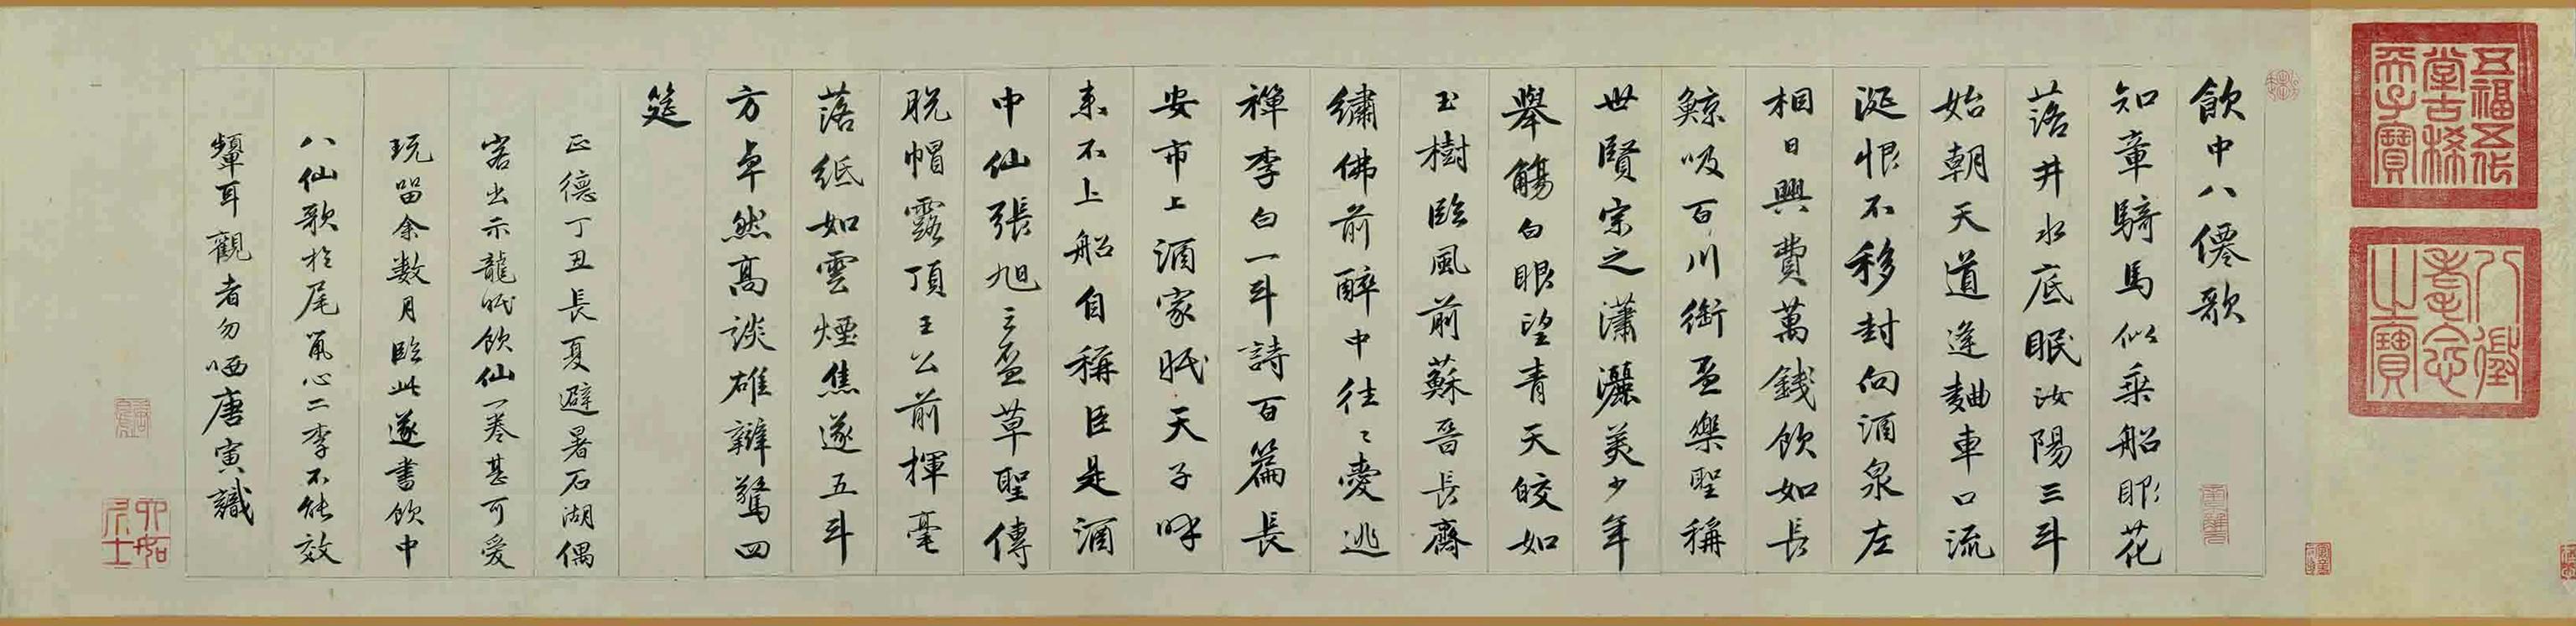 五福五代
堂古稀
天子寶
八徵
耄念
之寶
飲中八僊歌
知章騎馬似乘船眼花
落井水底眠汝陽三斗
始朝天道逢麯車口流
涎恨不移封向酒泉左
相日興費萬錢飲如長
鯨吸百川銜盃樂聖稱
世賢宗之瀟灑美少年
舉觴白眼望青天皎如
玉樹臨風前蘇晉長齋
繡佛前醉中往〻愛逃
禪李白一斗詩百篇長
安市上酒家眠天子呼
来不上船自稱臣是酒
中仙張旭三盃草聖傳
脫帽露頂王公前揮毫
落紙如雲煙焦遂五斗
方卓然高談雄辯驚四
筵
正德丁丑長夏避暑石湖偶
客出示龍眠飲仙一卷甚可愛
玩留余數月臨此遂書飲中
八仙歌於尾第心二李不能效
顰耳觀者勿哂唐寅識
六如
居士